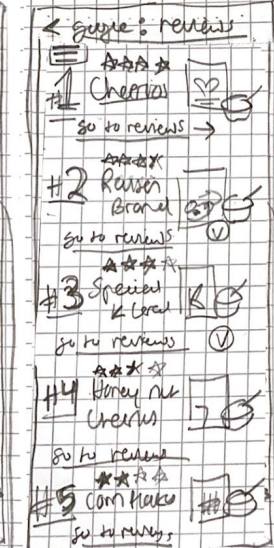 < : reviews
#1 Cheerios
go to reviews →
#2 Raisin
Brand
go to reviews
V
#3 Special
K Cereal
go to reviews
K
V
#4 Honey nut
Cheerios
go to reviews
#5 Corn flakes
go to reviews